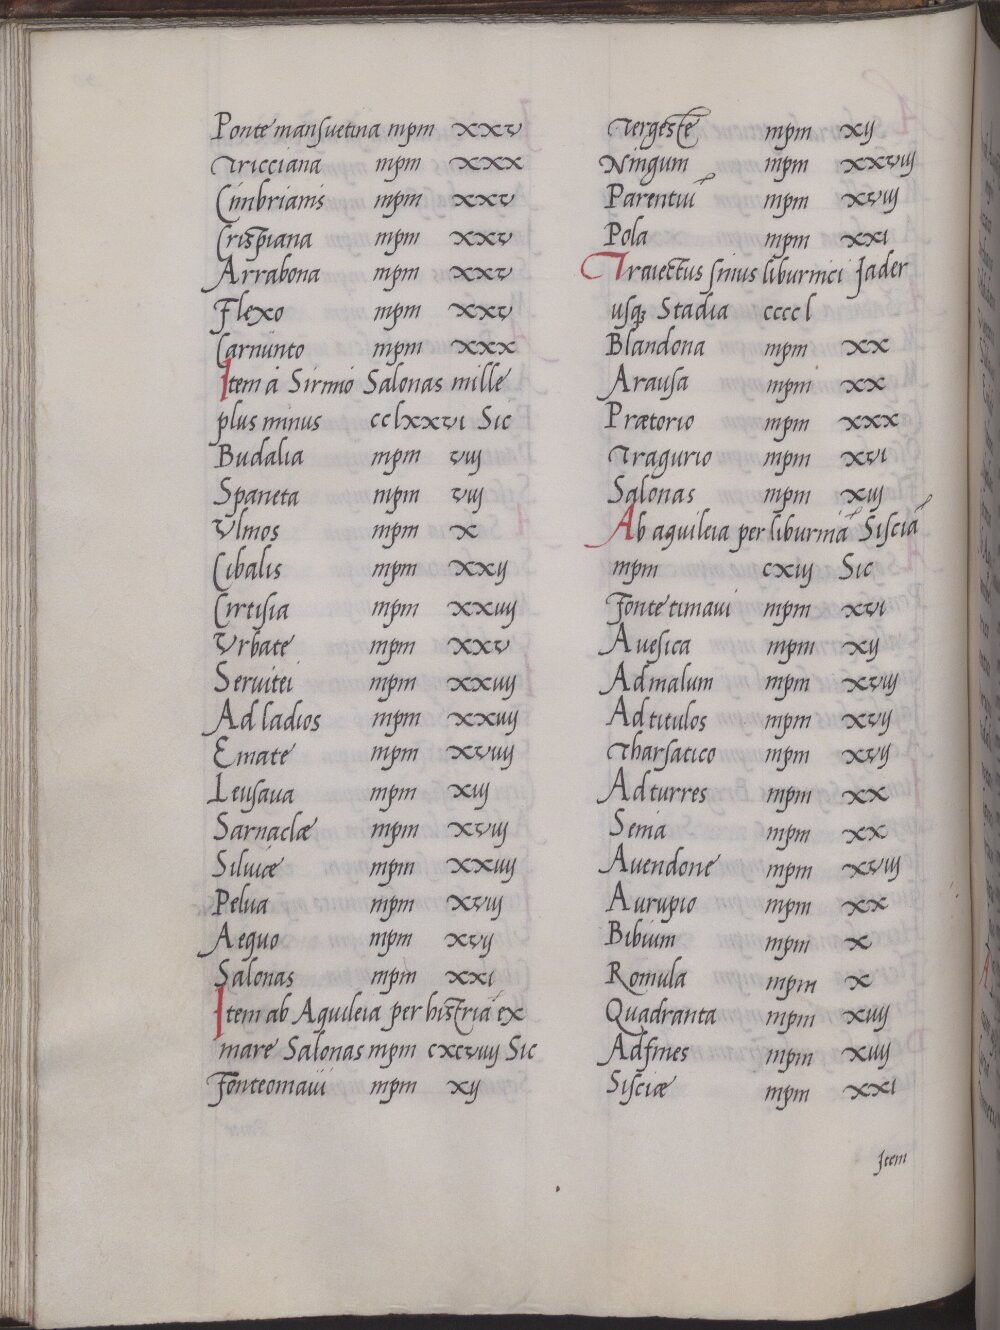 Ponte mansuetina mpm xxv
Tricciana mpm xxx
Cimbrianis mpm xxv
Crispiana mpm xxv
Arrabona mpm xxv
Flexo mpm xxv
Carnunto mpm xxx
Item a Sirmio Salonas mille
plus minus cclxxvi Sic
Budalia mpm viij
Spaneta mpm viij
Vlmos mpm x
Cibalis mpm xxij
Cirtisia mpm xxiiij
Vrbate mpm xxv
Seruitei mpm xxiiij
Ad ladios mpm xxiiij
Emate mpm xviiij
Leusaua mpm xiij
Sarnaclæ mpm xviij
Siluiæ mpm xxiiij
Pelua mpm xviij
Aequo mpm xvij
Salonas mpm xxi
Item ab Aquileia per histriā ex
mare Salonas mpm cxcviiij Sic
Fonteomaui mpm xij
Tergeste mpm xij
Ningum mpm xxviij
Parentiū mpm xviij
Pola mpm xxxi
Traiectus sinus liburnici Jader
usq; Stadia ccccl
Blandona mpm xx
Arausa mpm xx
Prætorio mpm xxx
Tragurio mpm xvi
Salonas mpm xiij
Ab aquileia per liburniā Sisciā
mpm cxiij Sic
Fonte timaui mpm xvi
Auesica mpm xij
Ad malum mpm xviij
Ad titulos mpm xvij
Tharsatico mpm xvij
Ad turres mpm xx
Senia mpm xx
Auendone mpm xviij
Aurupio mpm xx
Bibium mpm x
Romula mpm x
Quadranta mpm xiiij
Adfines mpm xiiij
Sisciæ mpm xxi
Item